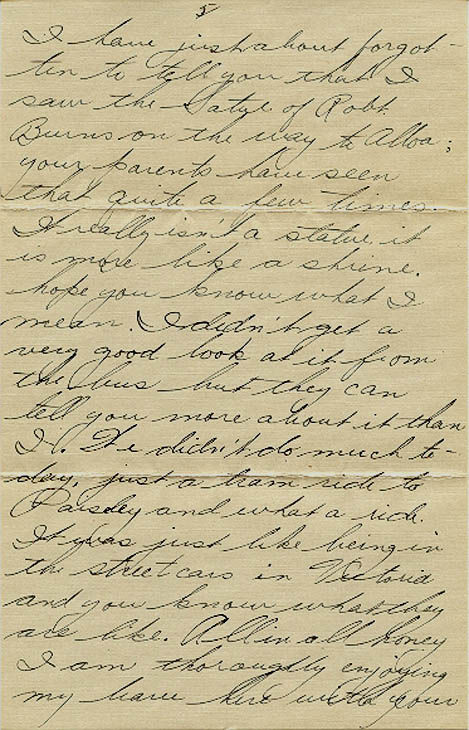 5
I have just about forgot-
ten to tell you that I
saw the Satue of Robt.
Burns on the way to Alloa;
your parents have seen
that quite a few times.
It really isn't a statue it
is more like a shrine.
hope you know what I
mean. I didn't get a
very good look at it from
the bus but they can
tell you more about it than
I. We didn't do much to-
day, just a tram ride to
Paisley and what a ride.
It was just like being in
the street cars in Victoria
and you know what they
are like. All in all honey
I am thoroughly enjoying
my leave here with your